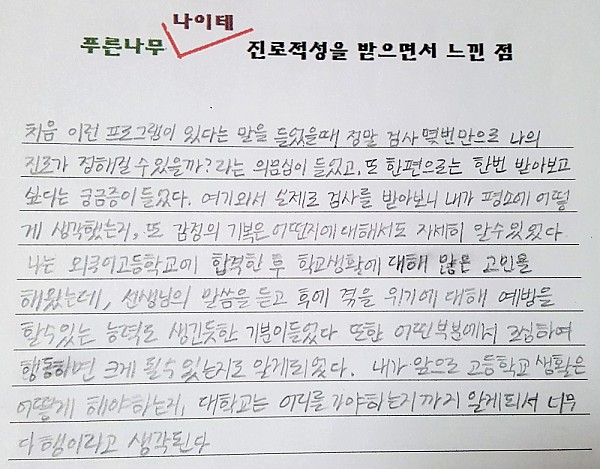 나이테
푸른나무 진로적성을 받으면서 느낀 점
처음 이런 프로그램이 있다는 말을 들었을때 정말 검사 몇번만으로 나의
진로가 정해질 수 있을까? 라는 의문심이 들었고, 또 한편으로는 한번 받아보고
싶다는 궁금증이 들었다. 여기와서 실제로 검사를 받아보니 내가 평소에 어떻
게 생각했는지, 또 감정의 기복은 어떤지에 대해서도 자세히 알수있었다
나는 외국어고등학교에 합격한 후 학교생활에 대해 많은 고민을
해왔는데, 선생님의 말씀을 듣고 후에 겪을 위기에 대해 예방을
할수있는 능력도 생긴듯한 기분이들었다 또한 어떤부분에서 조심하여
행동하면 크게 될수 있는지도 알게되었다. 내가 앞으로 고등학교 생활은
어떻게 해야하는지, 대학교는 어디를 가야하는지까지 알게되서 너무
다행이라고 생각된다